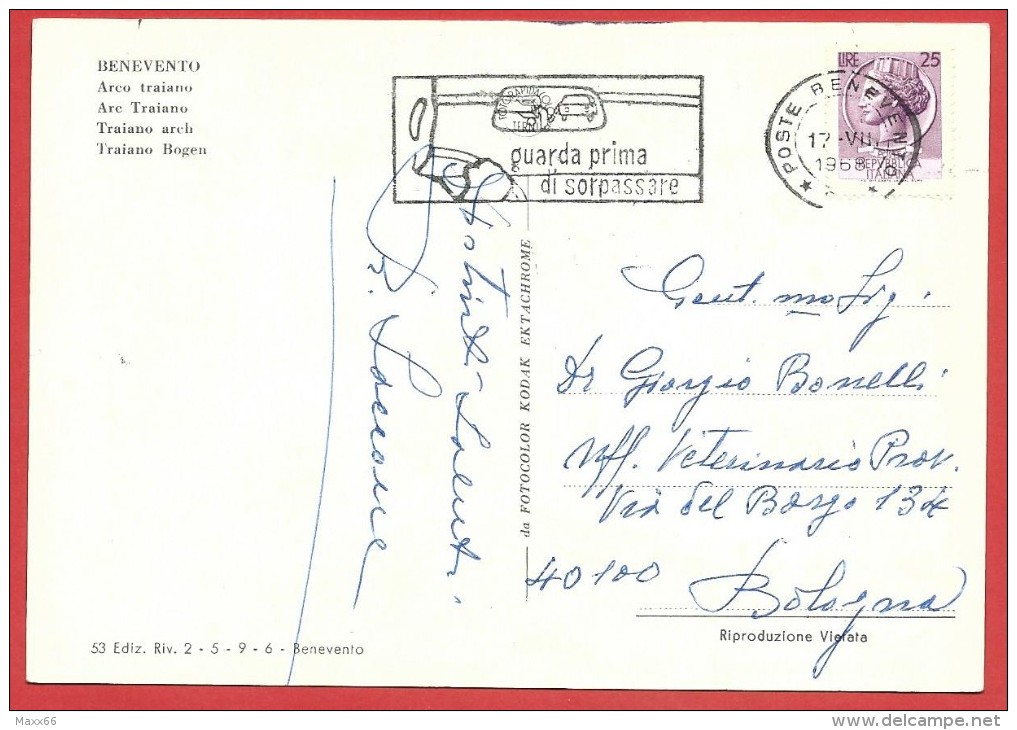 BENEVENTO
Arco traiano
Arc Traiano
Traiano arch
Traiano Bogen
guarda prima
di sorpassare
POSTE BENEVENTO
17-VII
1968
LIRE 25
REPVBBLICA
ITALIANA
Distinti Saluti
da FOTOCOLOR KODAK EKTACHROME
Gent.mo Sig.
Dr Giorgio Bonelli
Uff. Veterinario Prov.
Via del Borgo 134
40100 Bologna
Riproduzione Vietata
53 Ediz. Riv. 2 - 5 - 9 - 6 - Benevento
Maxx66
www.delcampe.net